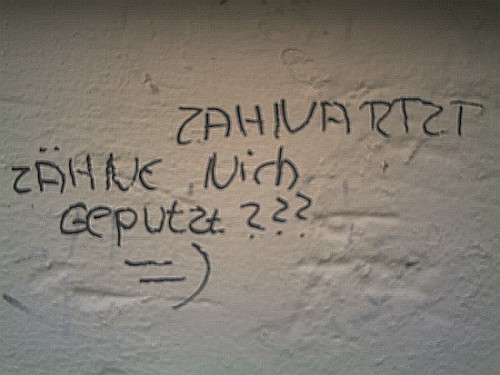 ZAHNARTZT
ZÄHNE Nich
Geputzt ???
=)